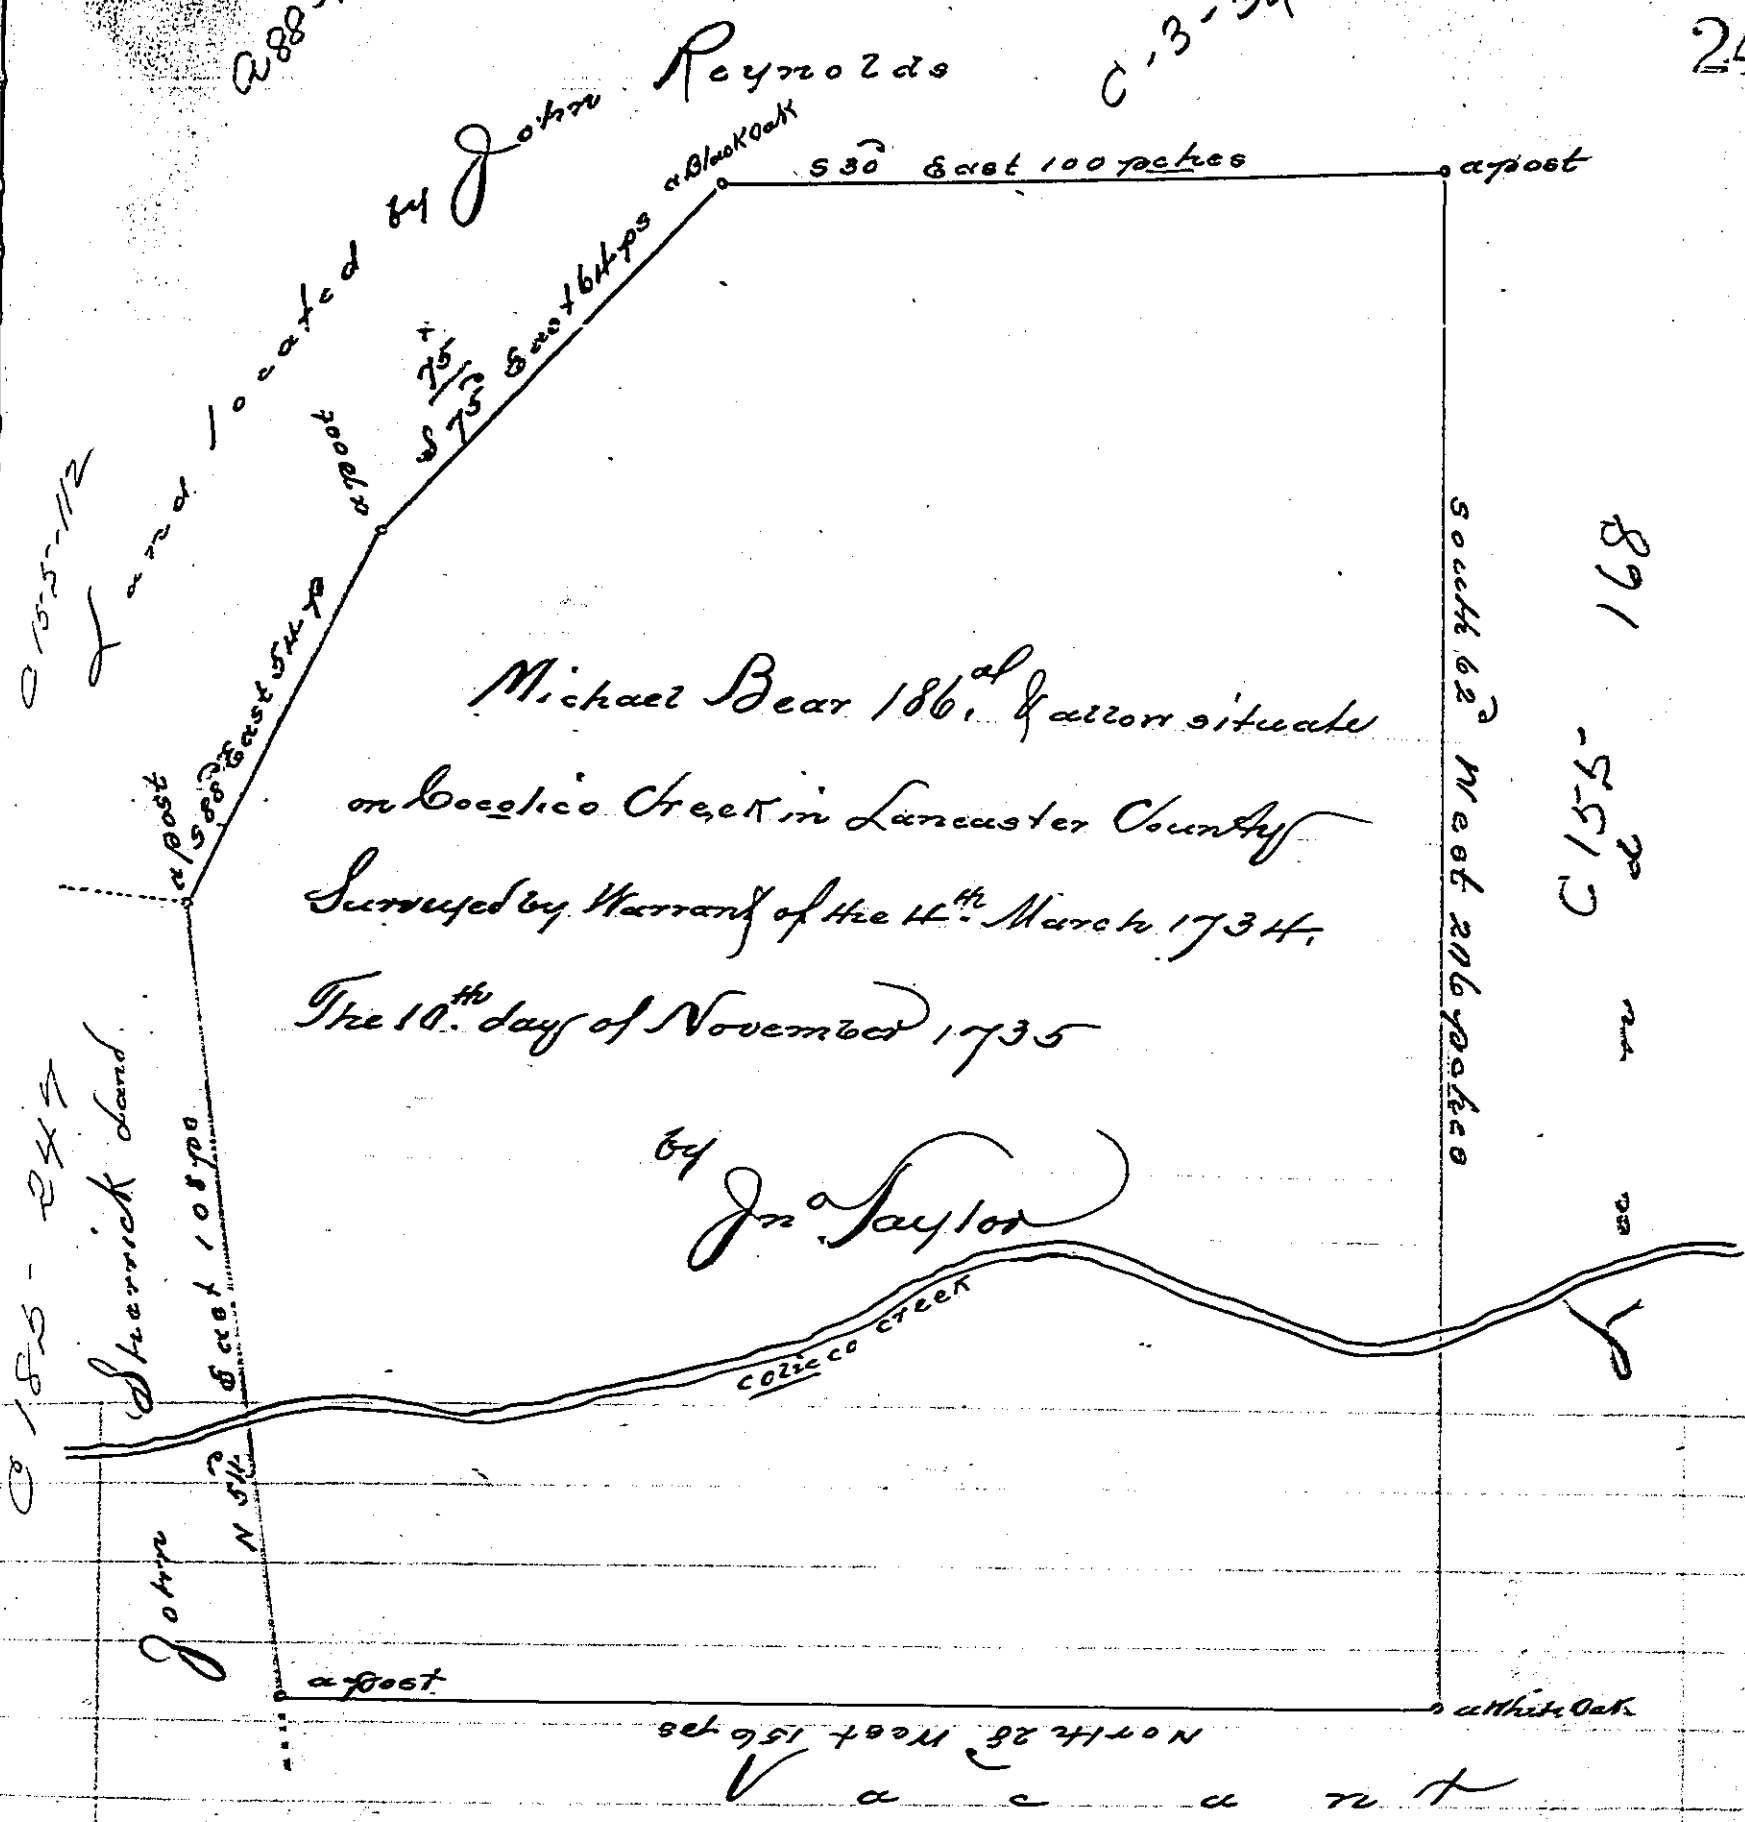 24
Land located by John Reynolds
a Black Oak
S 30 East 100 pches
a post
+
75
S 75 East 64 ps
a post
S 88 East 54 ps
a post
South 62 West 206 pches
C 155 168
Land
Michael Bear 186. al & allow situate
on Cocolico Creek in Lancaster County
Surveyed by Warrant of the 4th March 1734.
The 10th day of November 1735
by
Jno. Taylor
colico creek
John Sherrick Land
N 54 East 108 ps
C 185-245
a post
a White Oak
North 28 West 156 ps
Vacant